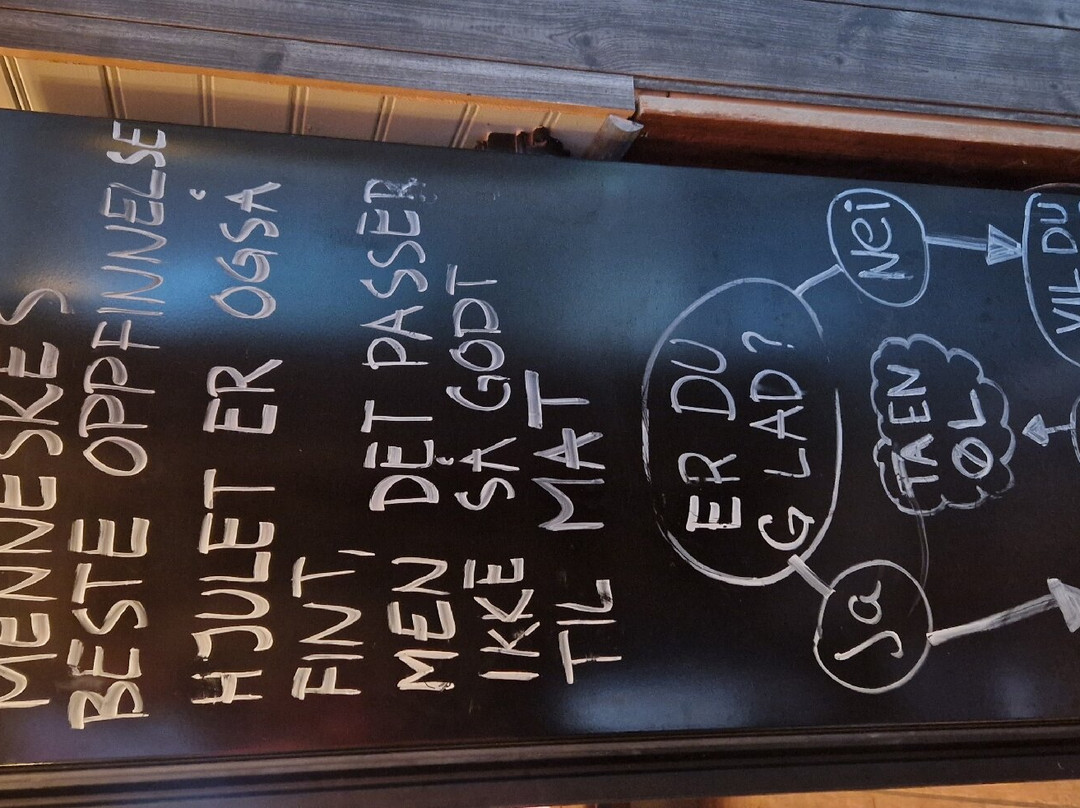 MENNESKES
BESTE OPPFINNELSE
HJULET ER OGSÅ
FINT,
MEN DET PASSER
IKKE SÅ GODT
TIL MAT
ER DU
GLAD?
Ja
Nei
TA EN
ØL
VIL DU